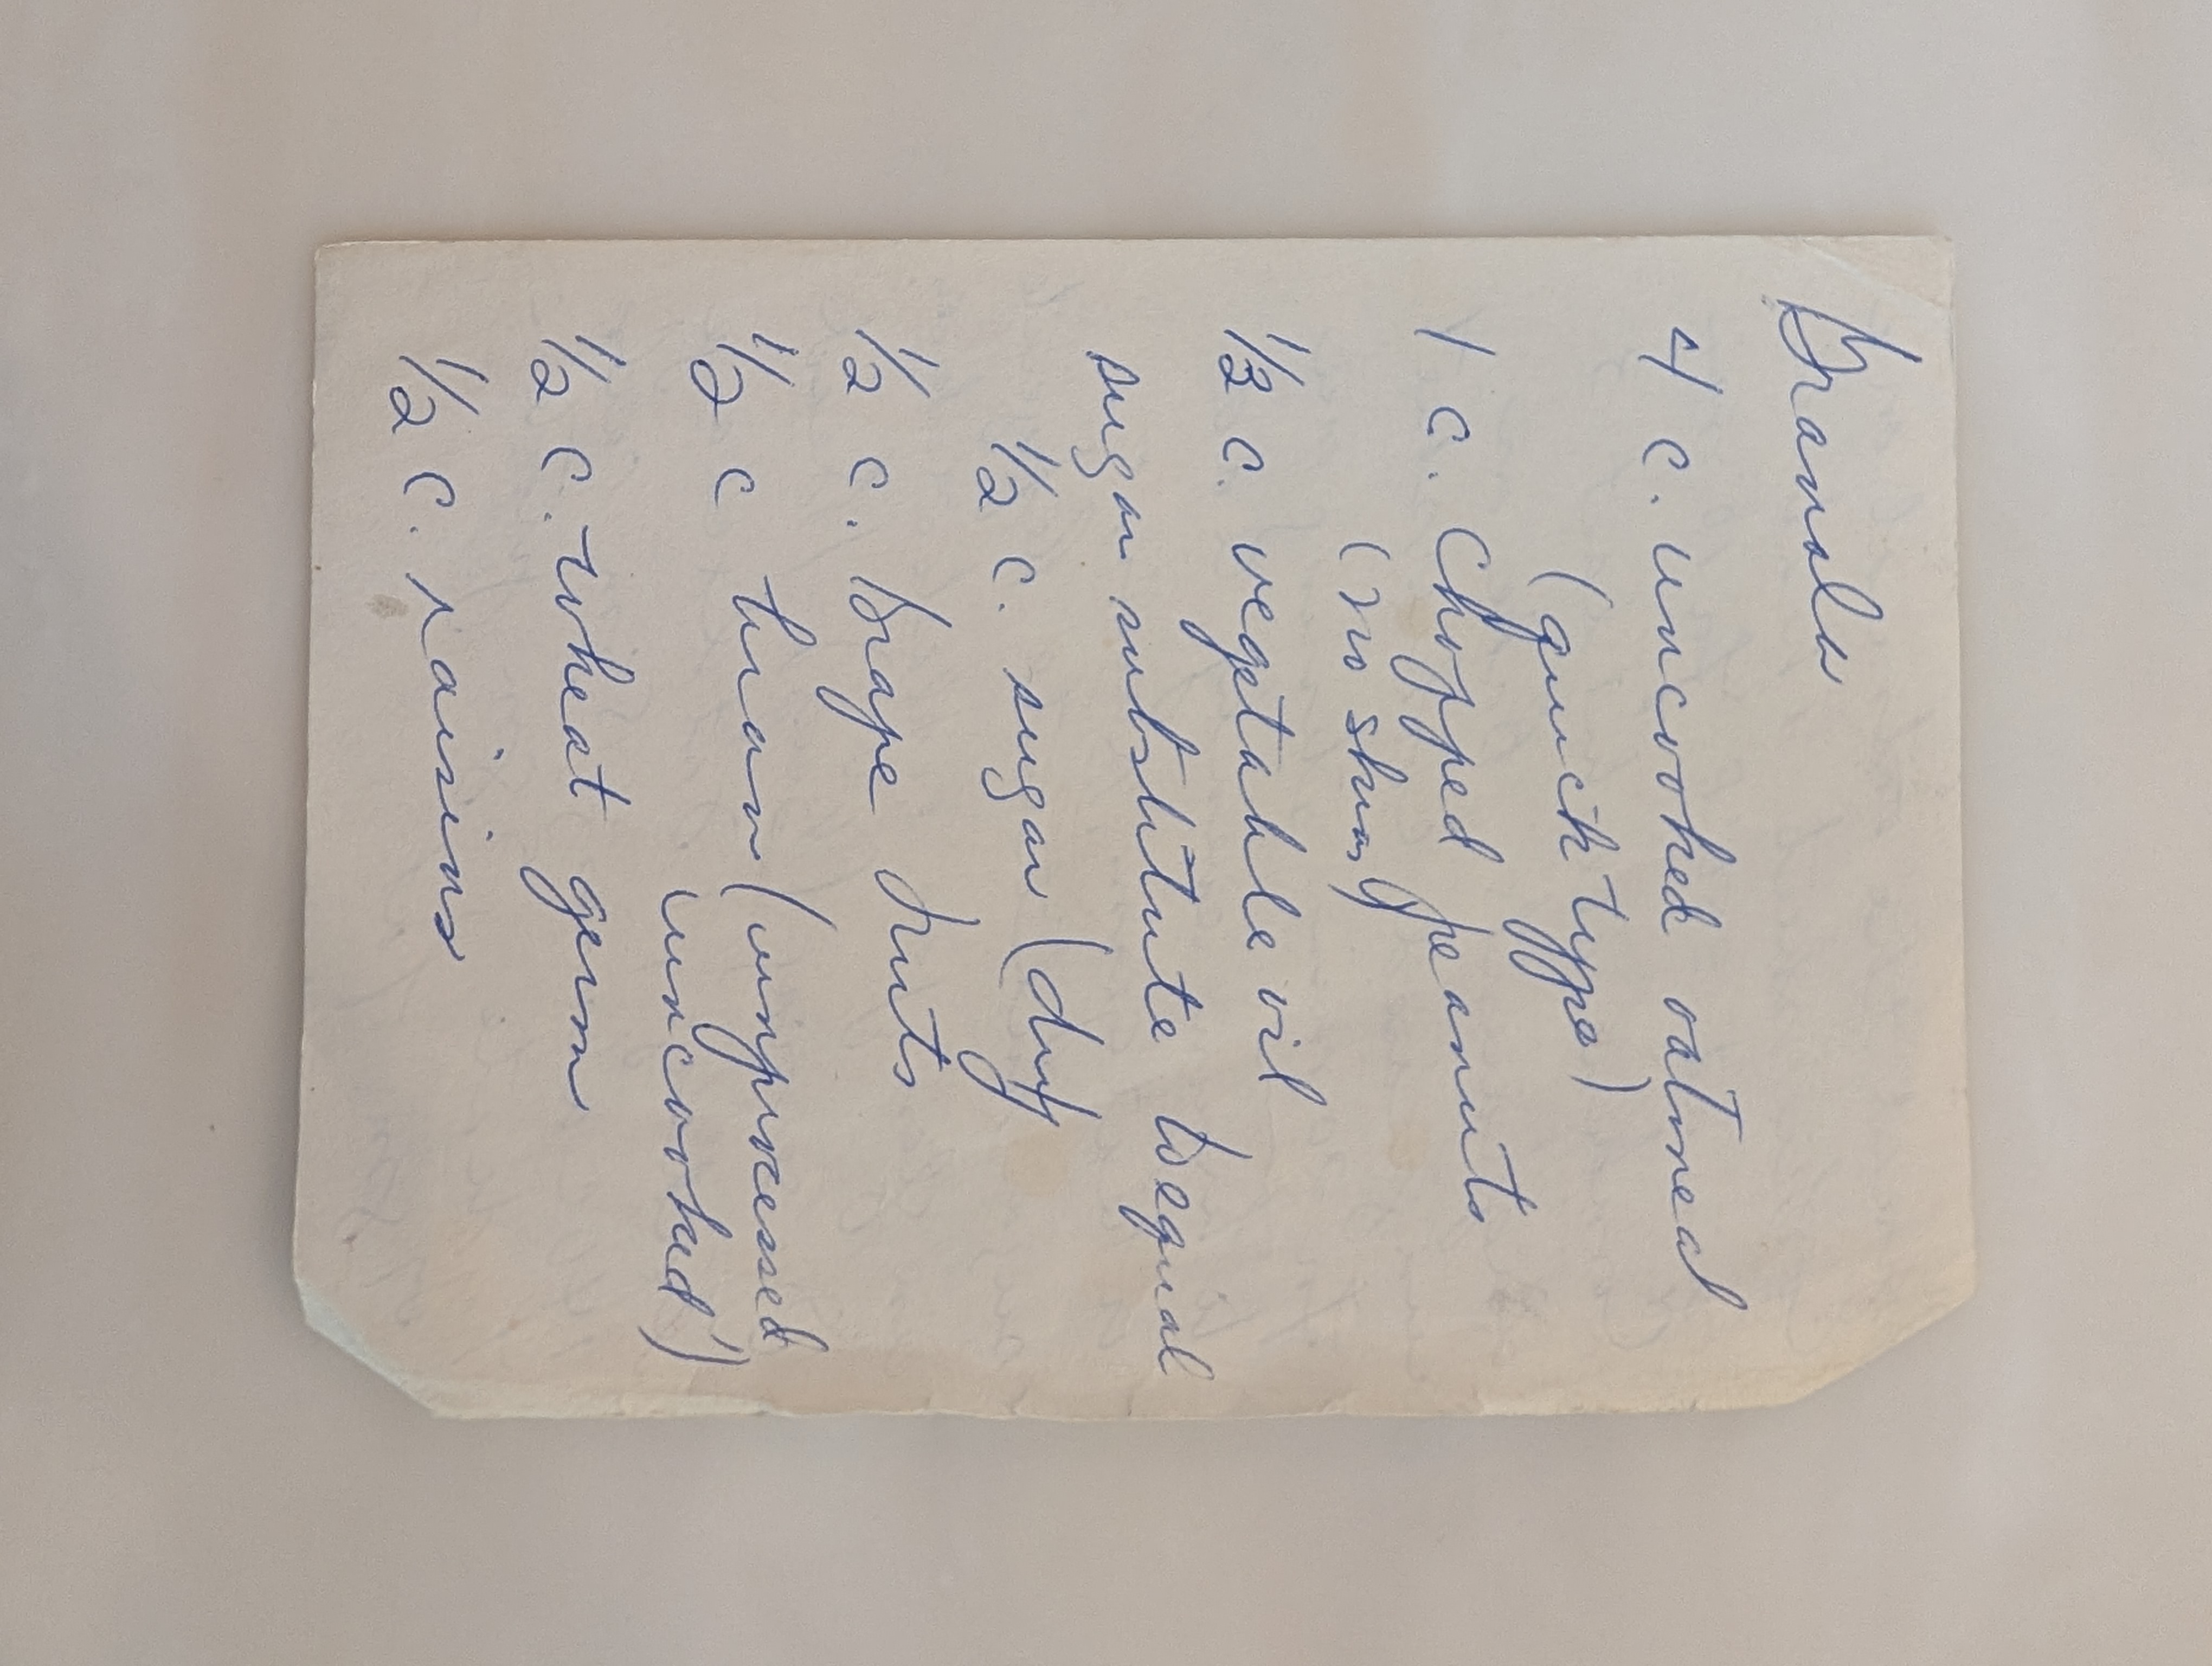 Granola
4 c. uncooked oatmeal
(quick type)
1 c. Chopped peanuts
(no skins)
1/3 c. vegetable oil
sugar substitute to equal
1/2 c. sugar (dry)
1/2 c. Grape Nuts
1/2 c bran (unprocessed
uncooked)
1/2 c. wheat germ
1/2 c. raisins